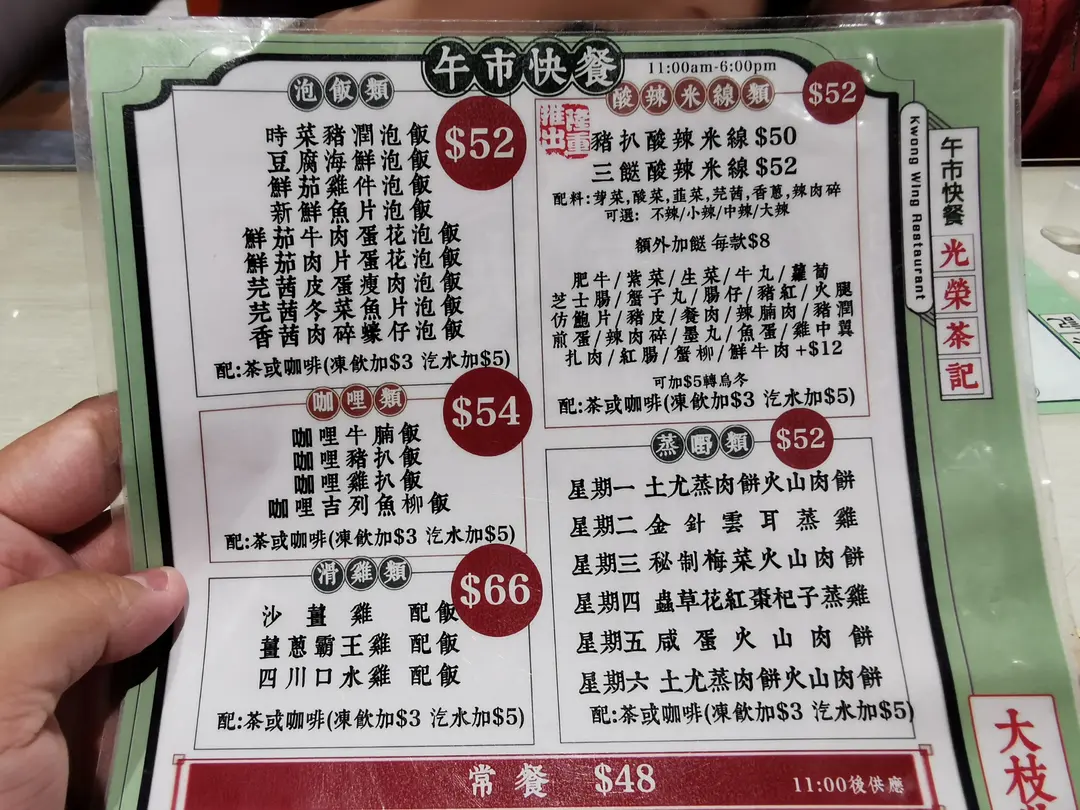 午市快餐
11:00am-6:00pm
泡飯類
$52
時菜豬潤泡飯
豆腐海鮮泡飯
鮮茄雞件泡飯
新鮮魚片泡飯
鮮茄牛肉蛋花泡飯
鮮茄肉片蛋花泡飯
芫茜皮蛋瘦肉泡飯
芫茜冬菜魚片泡飯
香茜肉碎蠔仔泡飯
配:茶或咖啡(凍飲加$3 汽水加$5)
咖哩類
$54
咖哩牛腩飯
咖哩豬扒飯
咖哩雞扒飯
咖哩吉列魚柳飯
配:茶或咖啡(凍飲加$3 汽水加$5)
滑雞類
$66
沙薑雞 配飯
薑蔥霸王雞 配飯
四川口水雞 配飯
配:茶或咖啡(凍飲加$3 汽水加$5)
隆重推出
酸辣米線類
$52
豬扒酸辣米線 $50
三餸酸辣米線 $52
配料:芽菜,酸菜,韮菜,芫茜,香蔥,辣肉碎
可選: 不辣/小辣/中辣/大辣
額外加餸 每款$8
肥牛/紫菜/生菜/牛丸/蘿蔔
芝士腸/蟹子丸/腸仔/豬紅/火腿
仿鮑片/豬皮/餐肉/辣腩肉/豬潤
煎蛋/辣肉碎/墨丸/魚蛋/雞中翼
扎肉/紅腸/蟹柳/鮮牛肉+$12
可加$5轉烏冬
配:茶或咖啡(凍飲加$3 汽水加$5)
蒸嘢類
$52
星期一 土尤蒸肉餅火山肉餅
星期二 金針雲耳蒸雞
星期三 秘制梅菜火山肉餅
星期四 蟲草花紅棗杞子蒸雞
星期五 咸蛋火山肉餅
星期六 土尤蒸肉餅火山肉餅
配:茶或咖啡(凍飲加$3 汽水加$5)
常餐 $48
11:00後供應
Kwong Wing Restaurant
午市快餐
光榮茶記
大枝